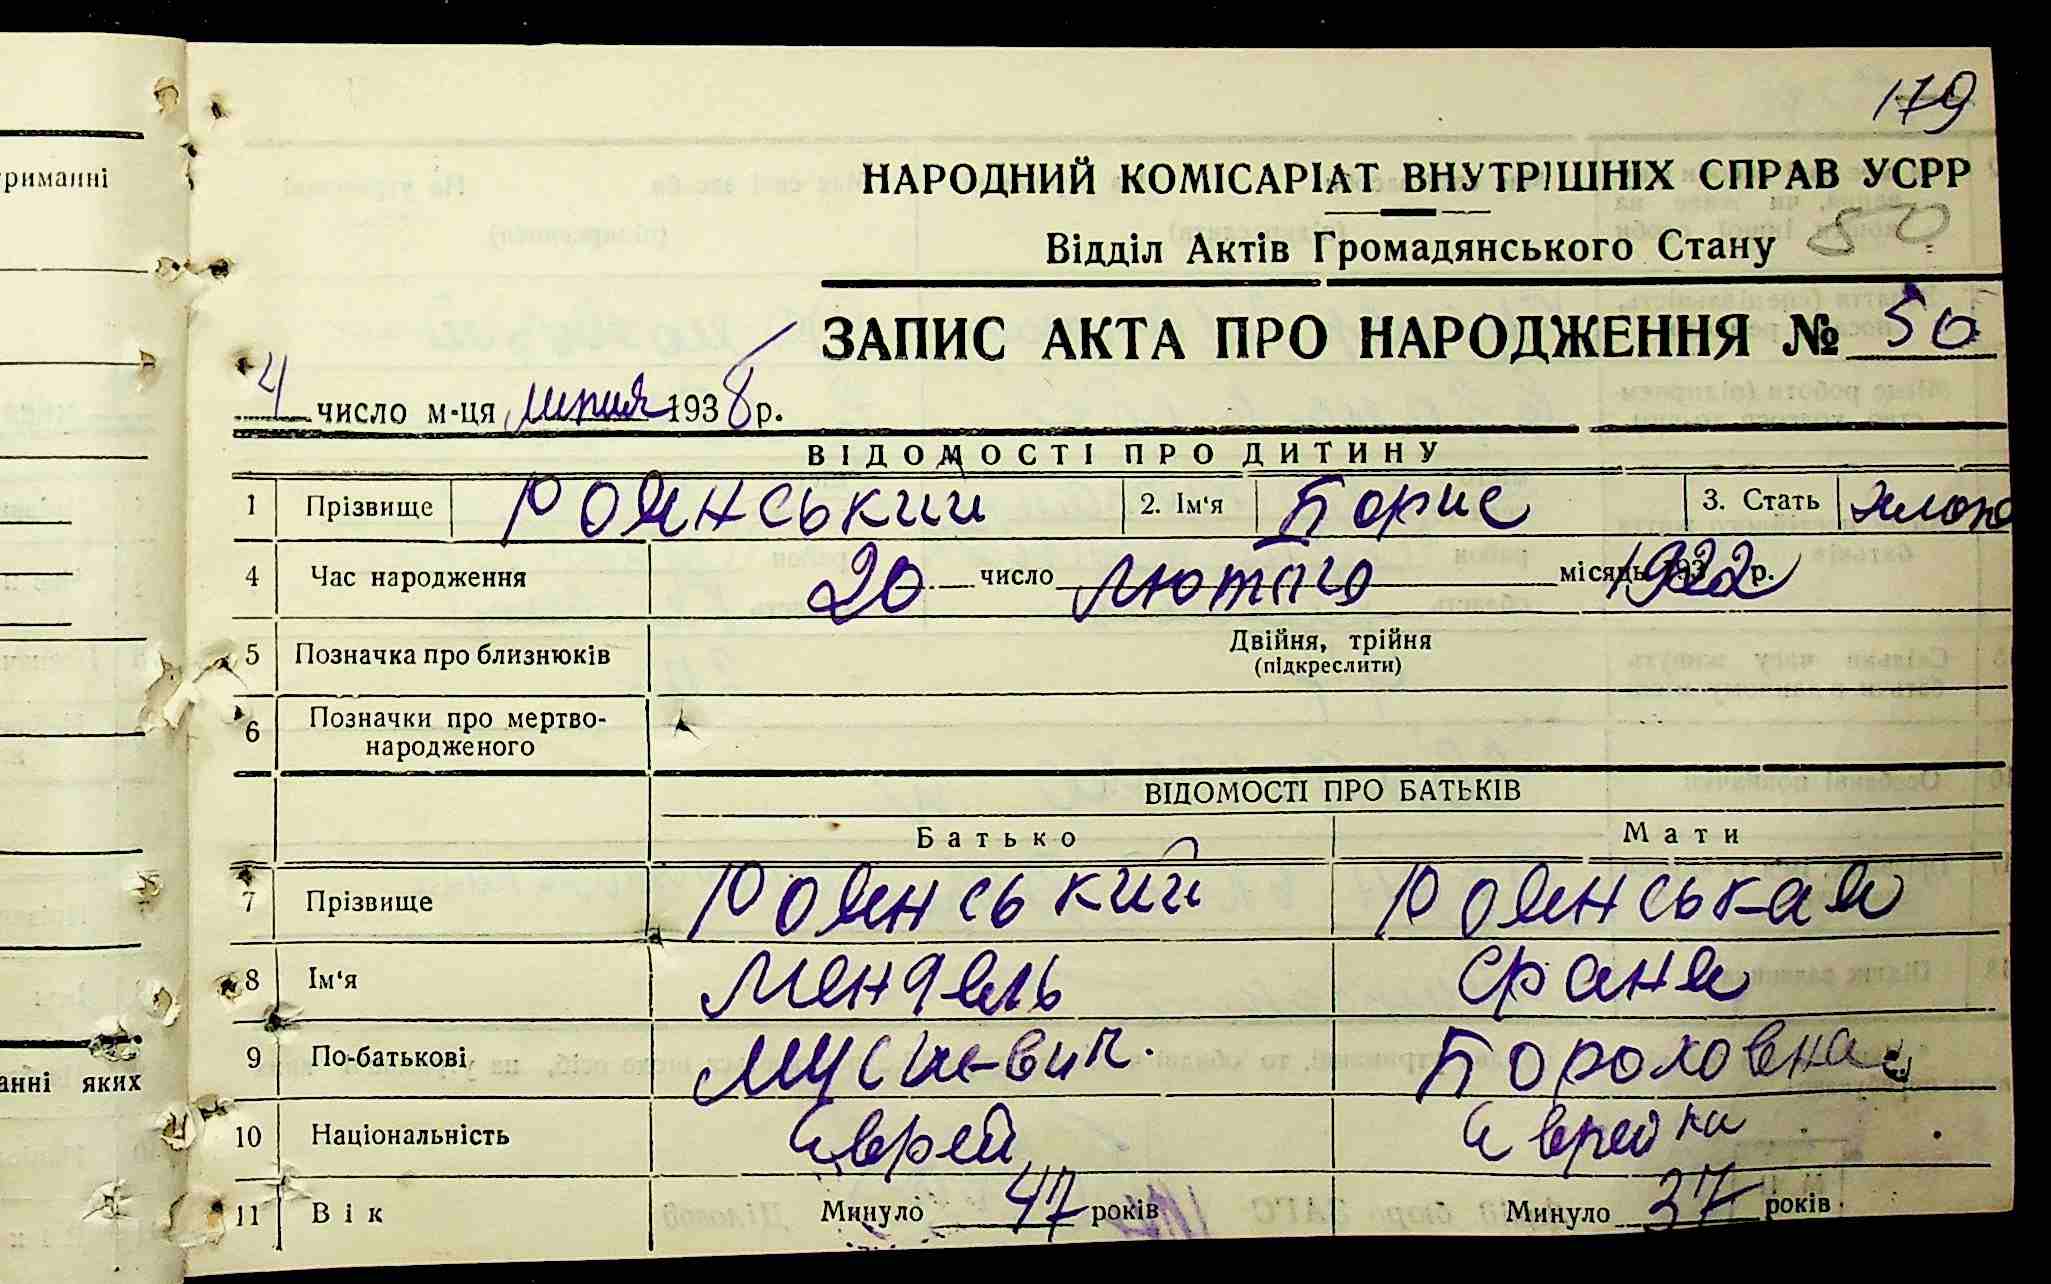 179
риманні
НАРОДНИЙ КОМІСАРІАТ ВНУТРІШНІХ СПРАВ УСРР
Відділ Актів Громадянського Стану 50
ЗАПИС АКТА ПРО НАРОДЖЕННЯ № 50
4 число м-ця липня 1938 р.
ВІДОМОСТІ ПРО ДИТИНУ
1 Прізвище Роянський 2. Ім'я Борис 3. Стать
4 Час народження 20 число лютого місяць 1922 р.
5 Позначка про близнюків Двійня, трійня
(підкреслити)
6 Позначки про мертво-
народженого
ВІДОМОСТІ ПРО БАТЬКІВ
Батько Мати
7 Прізвище Роянський Роянськая
8 Ім'я Мендель Франя
9 По-батькові Мусієвич. Бороховна
10 Національність Єврей Єврейка
11 Вік Минуло 47 років Минуло 37 років
анні яких